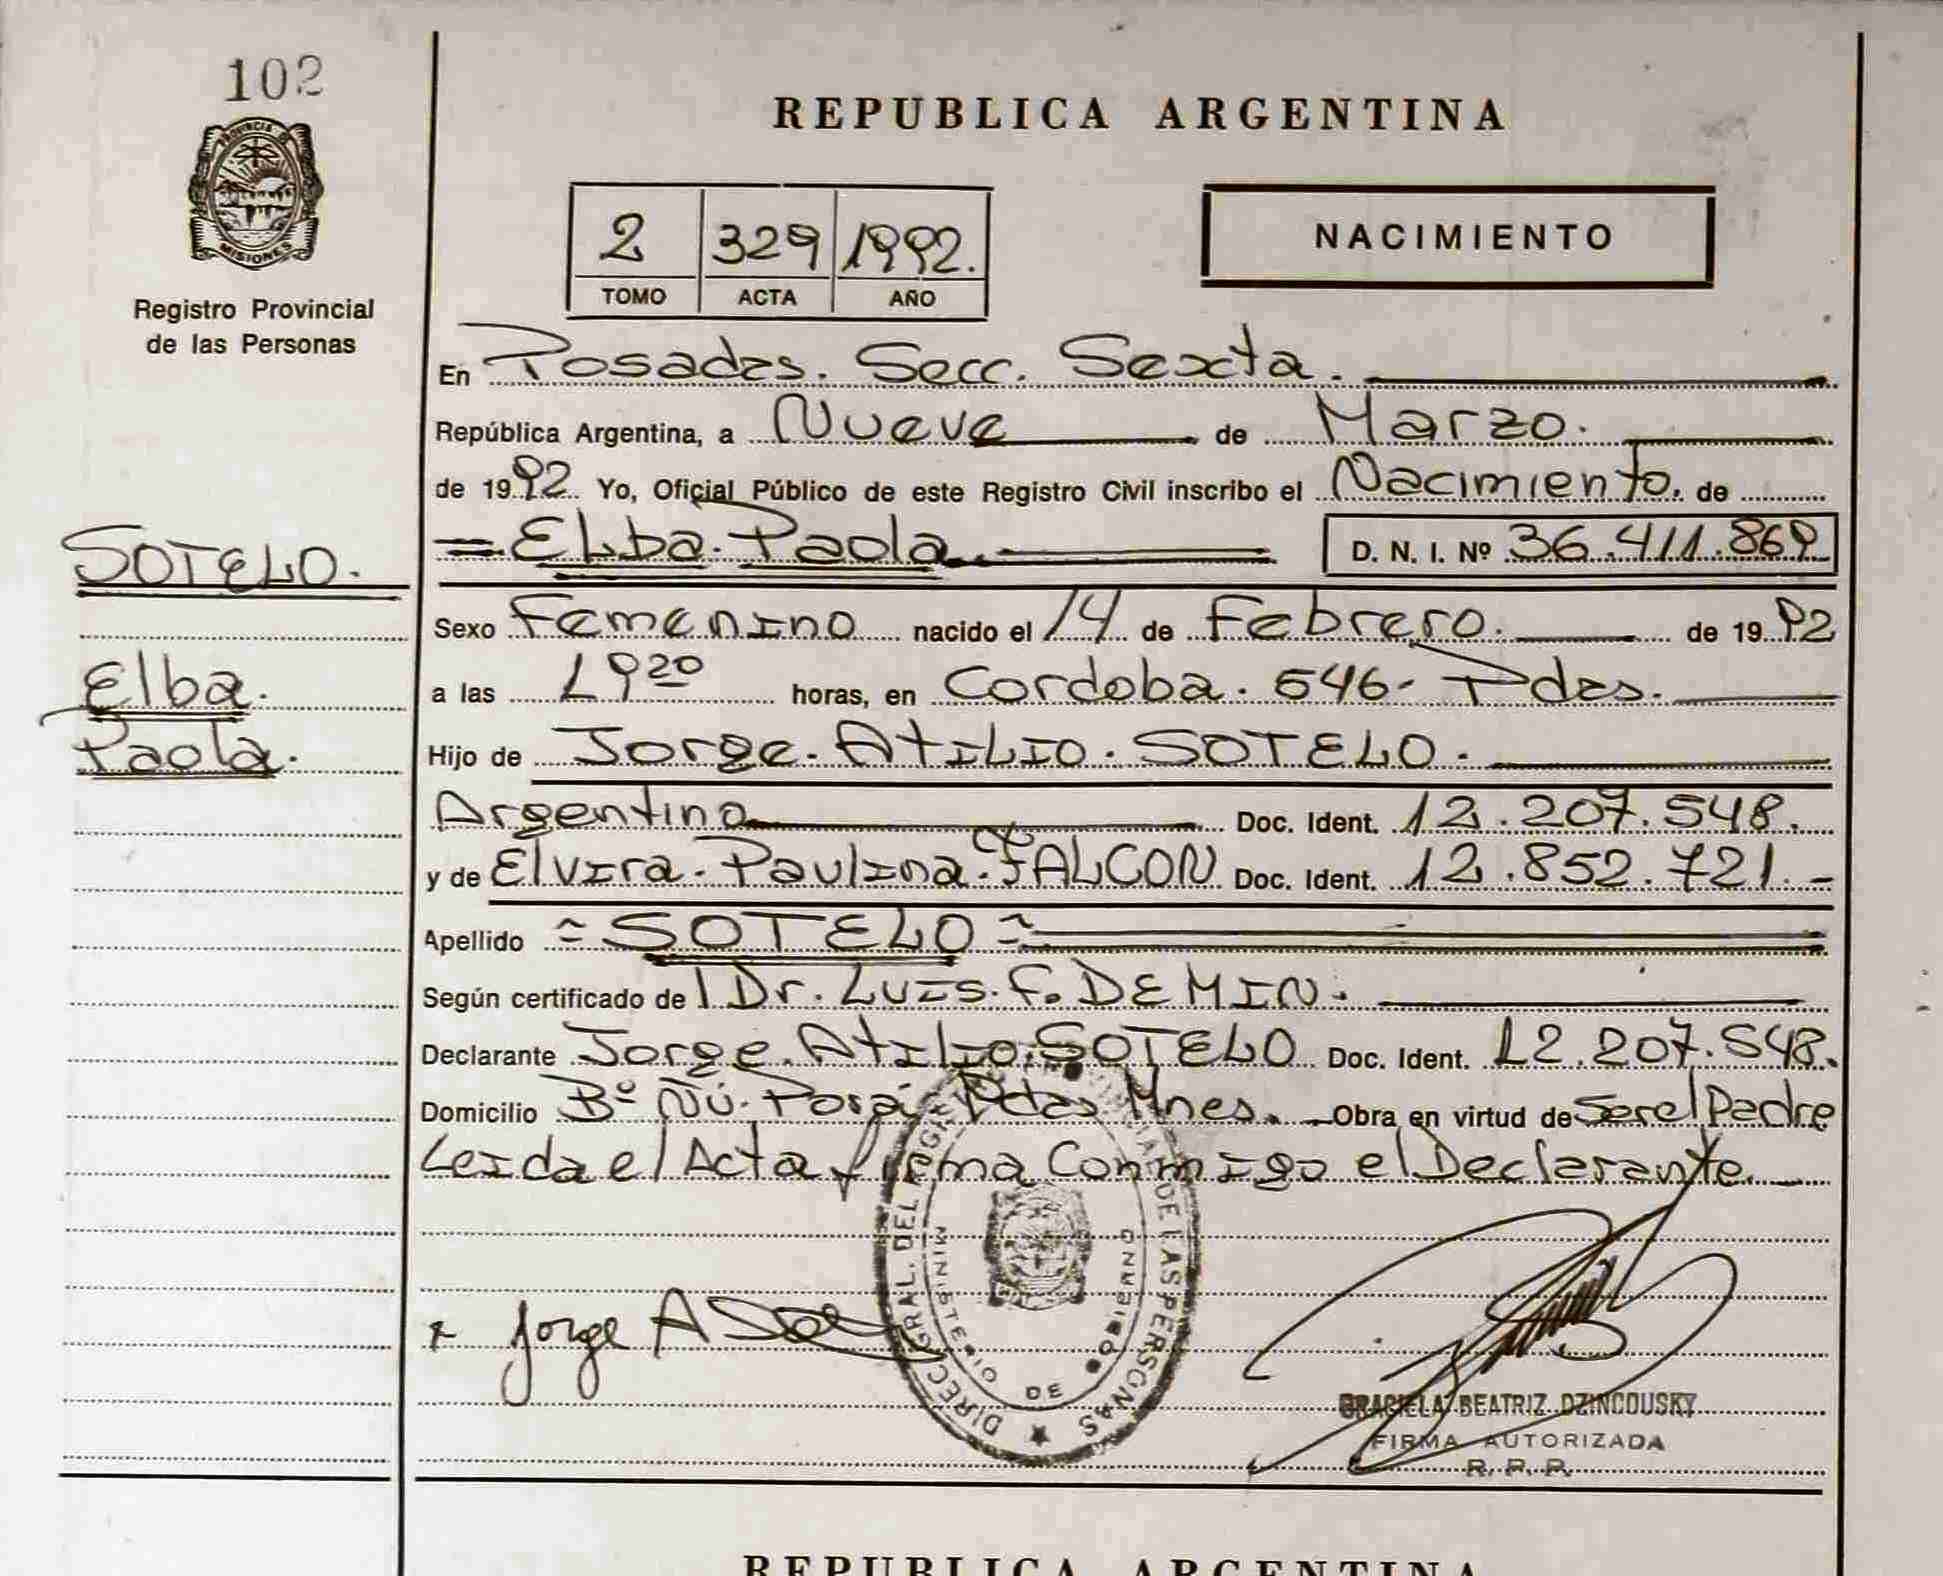 102
PROVINCIA DE
MISIONES
Registro Provincial
de las Personas
REPUBLICA ARGENTINA
2 329 1992.
TOMO ACTA AÑO
NACIMIENTO
En Posadas. Secc. Sexta.
República Argentina, a Nueve de Marzo.
de 1992 Yo, Oficial Público de este Registro Civil inscribo el Nacimiento. de
= Elba. Paola. D. N. I. Nº 36.411.869
SOTELO.
Elba.
Paola.
Sexo Femenino nacido el 14 de Febrero. de 1992
a las 19 20 horas, en Cordoba. 546- Pdas.
Hijo de Jorge. Atilio. SOTELO.
Argentino Doc. Ident. 12.207.548.
y de Elvira. Paulina. FALCON Doc. Ident. 12.852.721.-
Apellido = SOTELO =
Según certificado del Dr. Luis. F. DEMIN.
Declarante Jorge. Atilio. SOTELO Doc. Ident. 12.207.548.
Domicilio Bº Ñú. Porá- Pdas Mnes. Obra en virtud de Ser el Padre
Leida el Acta firma Conmigo el Declarante.
Jorge A
DIREC. GRAL. DEL DE LAS PERSONAS
MINISTERIO DE GOBIERNO
GRACIELA BEATRIZ DZINCOUSKY
FIRMA AUTORIZADA
R. P. P.
REPUBLICA ARGENTINA